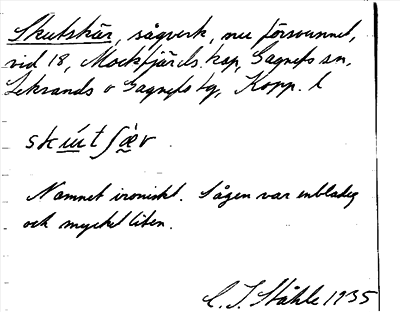 Skutskär, sågverk, nu försvunnet,
vid 18, Mockfjärds kap, Gagnefs sn,
Leksands o Gagnefs tg, Kopp. l
skútʃæ̀r.
Namnet ironiskt. Sågen var enbladig
och mycket liten.
C. I. Ståhle 1935